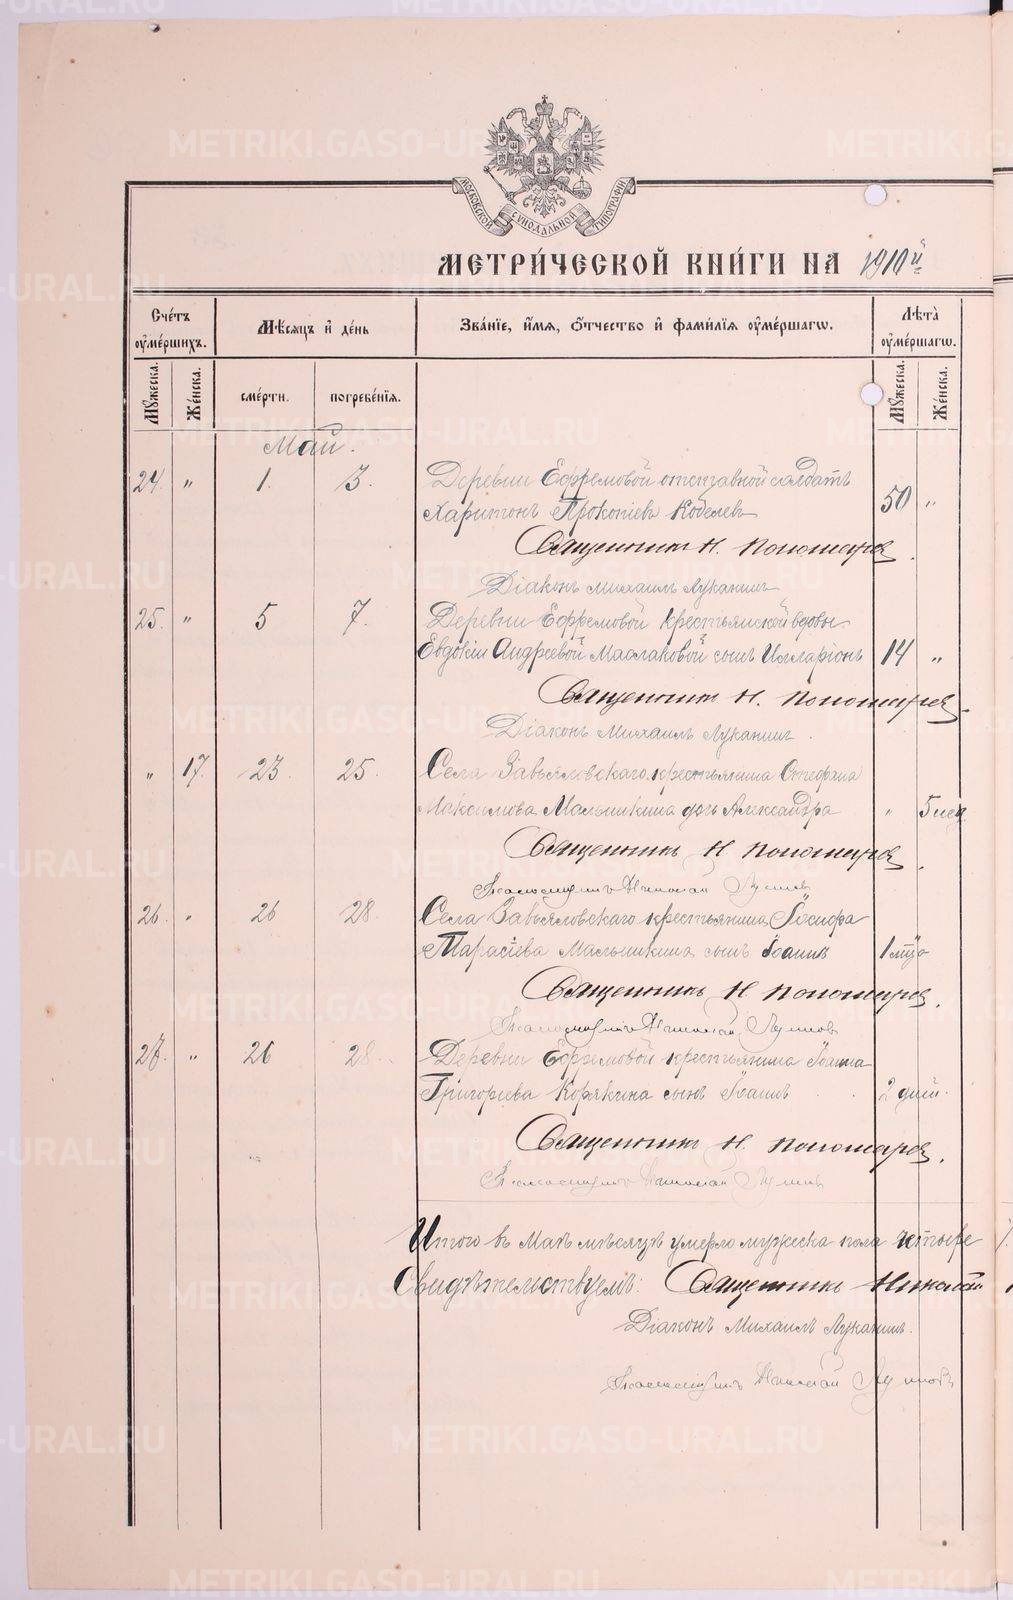 METRIKI.GASO-URAL.RU
МОСКОВСКОЙ СѴНОДАЛЬНОЙ ТИПОГРАФІИ
МЕТРИ́ЧЕСКОЙ КНИ́ГИ НА 1910й
Сче́тъ оумéршихъ.
Мѣ́сяцъ и҆ де́нь
Зва́нїе, и҆́мя, ѻ҆́тчество и҆ фами́лїя оумéршагѡ.
Лѣта̀ оумéршагѡ.
Мꙋ́жеска.
Же́нска.
сме́рти.
погребе́нїя.
Мꙋ́жеска.
Же́нска.
Май.
24. " 1. 3. Деревни Ефремовой отставной солдатъ
Харитонъ Прокопіевъ Кобелевъ 50 "
Священникъ Н. Пономаревъ.
Діаконъ Михаилъ Луканинъ
25. " 5 7. Деревни Ефремовой крестьянской вдовы
Евдокіи Андреевой Маслаковой сынъ Илларіонъ 14 "
Священникъ Н. Пономаревъ
Діаконъ Михаилъ Луканинъ.
" 17. 23. 25. Села Завьяловскаго крестьянина Стефана
Максимова Малышкина дочь Александра " 5 мѣс.
Священникъ Н Пономаревъ.
Псаломщикъ Николай
26. " 26 28. Села Завьяловскаго крестьянина Іосифа
Тарасіева Малышкина сынъ Іоаннъ 1 мѣс.
Священникъ Н Пономаревъ.
Псаломщикъ Николай
27. " 26 28. Деревни Ефремовой крестьянина Іоанна
Григорьева Корякина сынъ Іоаннъ 2 дней.
Священникъ Н. Пономаревъ.
Псаломщикъ Николай
Итого въ Маѣ мѣсяцѣ умерло мужеска пола четыре
Свидѣтельствуемъ: Священникъ Николай
Діаконъ Михаилъ Луканинъ.
Псаломщикъ Николай